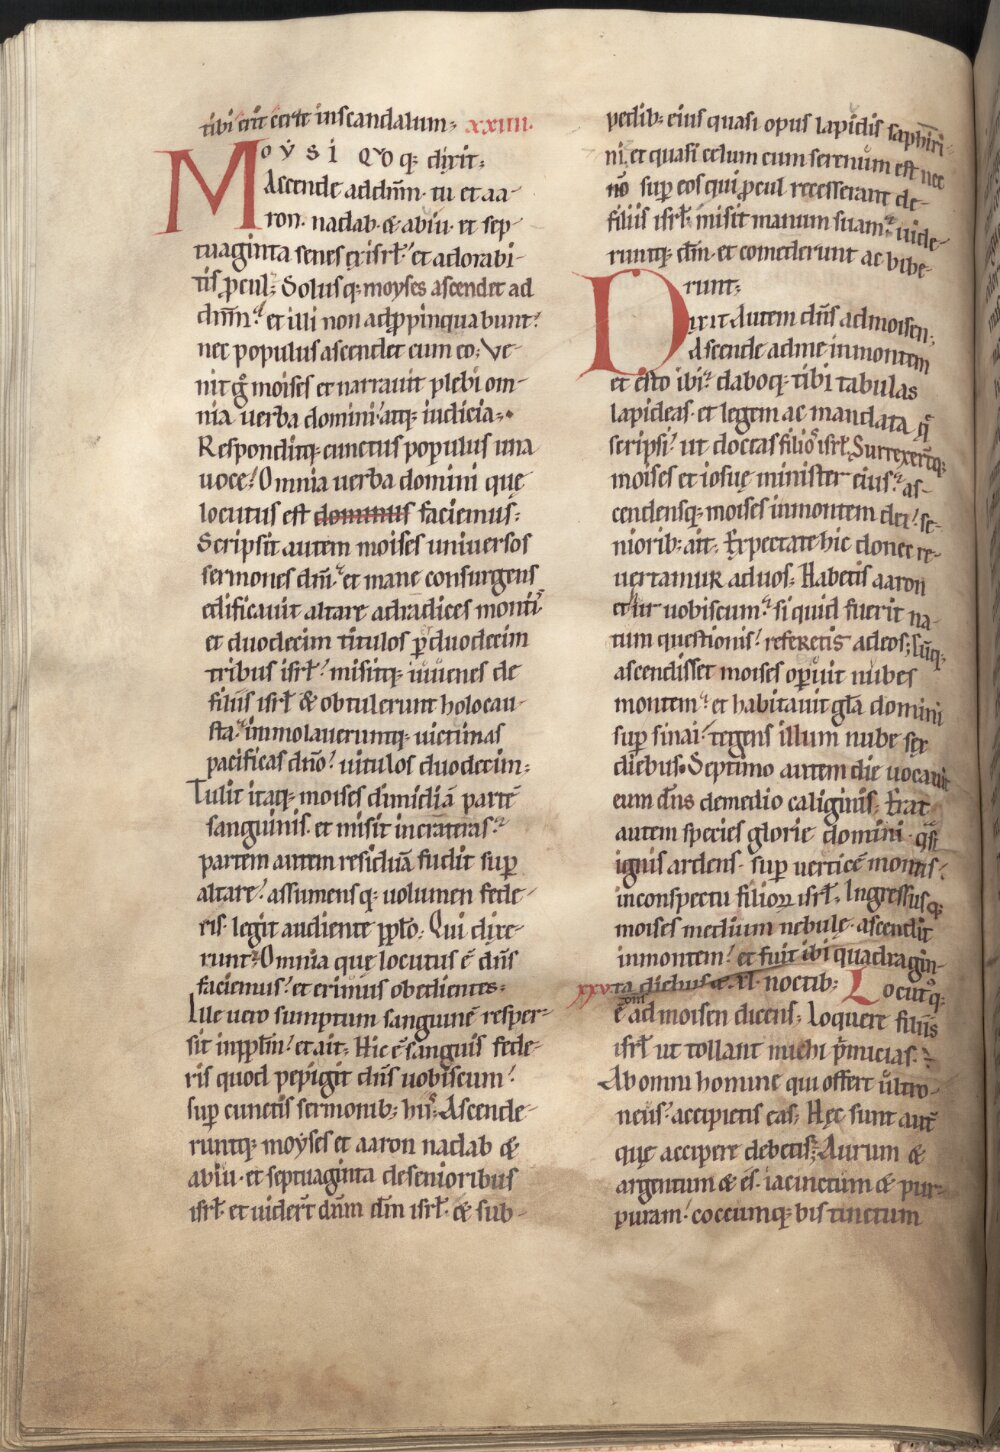 tibi erit certe inscandalum; xxiiii.
MOYSI QVOq; dixit;
Ascende addnm̄. tu et aa-
ron. nadab. & abiu. et sep-
tuaginta senes exisrł. et adorabi-
tis ꝓcul; Solusq; moyses ascendet ad
dnm̄. et illi non adꝓpinquabunt.
nec populus ascendet cum eo; Ve-
nit gͦ moises et narrauit plebi om-
nia uerba domini. atq; iudicia;
Responditq; cunctus populus una
uoce. Omnia uerba domini quę
locutus est dominus faciemus;
Scripsit autem moises uniuersos
sermones dnī. et mane consurgens
edificauit altare adradices montis
et duodecim titulos ꝑ duodecim
tribus isrł. misitq; iuuenes de
filiis isrł & obtulerunt holocau-
sta. immolaueruntq; uictimas
pacificas dnō. uitulos duodecim;
Tulit itaq; moises dimidiā partē
sanguinis. et misit incrateras.
partem autem residuā fudit suꝑ
altare. assumensq; uolumen fede-
ris. legit audiente ppłō; Qui dixe-
runt. Omnia quę locutus ē dn̄s
faciemus. et erimus obedientes;
Ille uero sumptum sanguinē resper-
sit inppłm. et ait; Hic ē sanguis fede-
ris quod pepigit dn̄s uobiscum.
suꝑ cunctis sermonib; his; Ascende-
runtq; moyses et aaron nadab &
abiu. et septuaginta desenioribus
isrł. et uidert̄ dnm̄ dm̄ isrł. & sub-
pedib; eius quasi opus lapidis saphiri-
ni. et quasi celum cum serenum est nec
suꝑ eos qui ꝓcul recesserant de-
filiis isrł. misit manum suam. uide-
runtq; dm̄. et comederunt ac bibe-
runt;
DIXIT Autem dn̄s admoisen;
Ascende adme inmontem
et esto ibi. daboq; tibi tabulas
lapideas. et legem ac mandata q̄
scripsi. ut doceas filios isrł; Surrexerūtq;
moises et iosuę minister eius. as-
cendensq; moises inmontem dei. se-
niorib; ait; Expectate hic donec re-
uertamur aduos; Habetis aaron
et hur uobiscum. si quid fuerit na-
tum questionis. referetis adeos; Cūq;
ascendisset moises oꝑuit nubes
montem. et habitauit głā domini
suꝑ sinai. tegens illum nube sex
diebus. Septimo autem die uocauit
eum dn̄s demedio caliginis; Erat
autem species glorie domini. qͣsi
ignis ardens. suꝑ uerticē montis.
inconspectu filioꝝ isrł; Ingressusq;
moises medium nebulę. ascendit
inmontem. et fuit ibi quadragin-
xxv ta diebus & xl. noctib; Locutusq;
ē dom̄ ad moisen dicens; Loquere filiis
isrł ut tollant michi p̄micias.
Ab omni homine qui offert ultro-
neus. accipietis eas; Hęc sunt autē
quę accipere debetis; Aurum &
argentum & es. iacinctum & pur-
puram. coccumq; bis tinctum